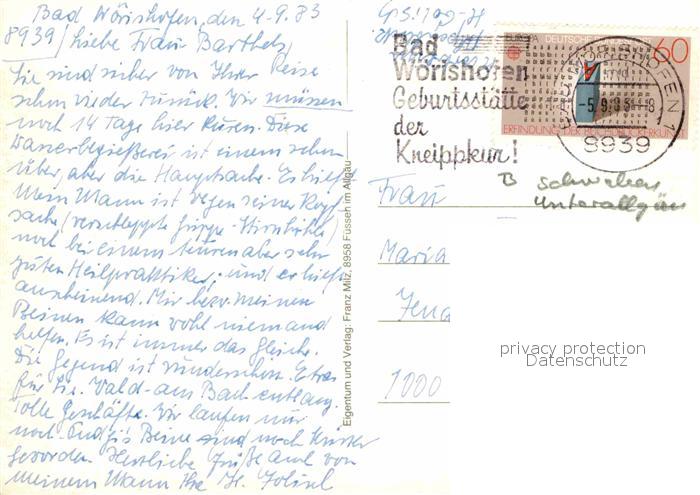 Bad Wörishofen, den 4.9.83
8939 / Liebe Frau Barthelz,
Sie sind sicher von Ihrer Reise
schon wieder zurück. Wir müssen
noch 14 Tage hier kuren. Diese
Wasserbegießerei ist einem schon
über, aber die Hauptsache. Es hilft
Mein Mann ist wegen seiner Kopf
sache (verschleppte Grippe-
noch bei einem teuren aber sehr
guten Heilpraktiker, und er hilft
anscheinend. Mir bezw. meinen
Beinen kann wohl niemand
helfen. Es ist immer das gleiche.
Die Gegend ist wunderschön. Etwas
für Sie. Wald - am Bach entlang.
Tolle Geschäfte. Wir laufen nur
noch. Und die Beine sind noch
geworden. Herzliche Grüße auch von
meinem Mann Ihre H.
Eigentum und Verlag: Franz Milz, 8958 Füssen im Allgäu
EUROPA DEUTSCHE BUNDESPOST 60
ERFINDUNG DER BUCHDRUCKERKUNST
Bad
Wörishofen
Geburtsstätte
der
Kneippkur!
BAD WÖRISHOFEN 1
-5.9.83-8
8939
B Schwaben
Unterallgäu
Frau
Maria
Jena
1000
privacy protection
Datenschutz